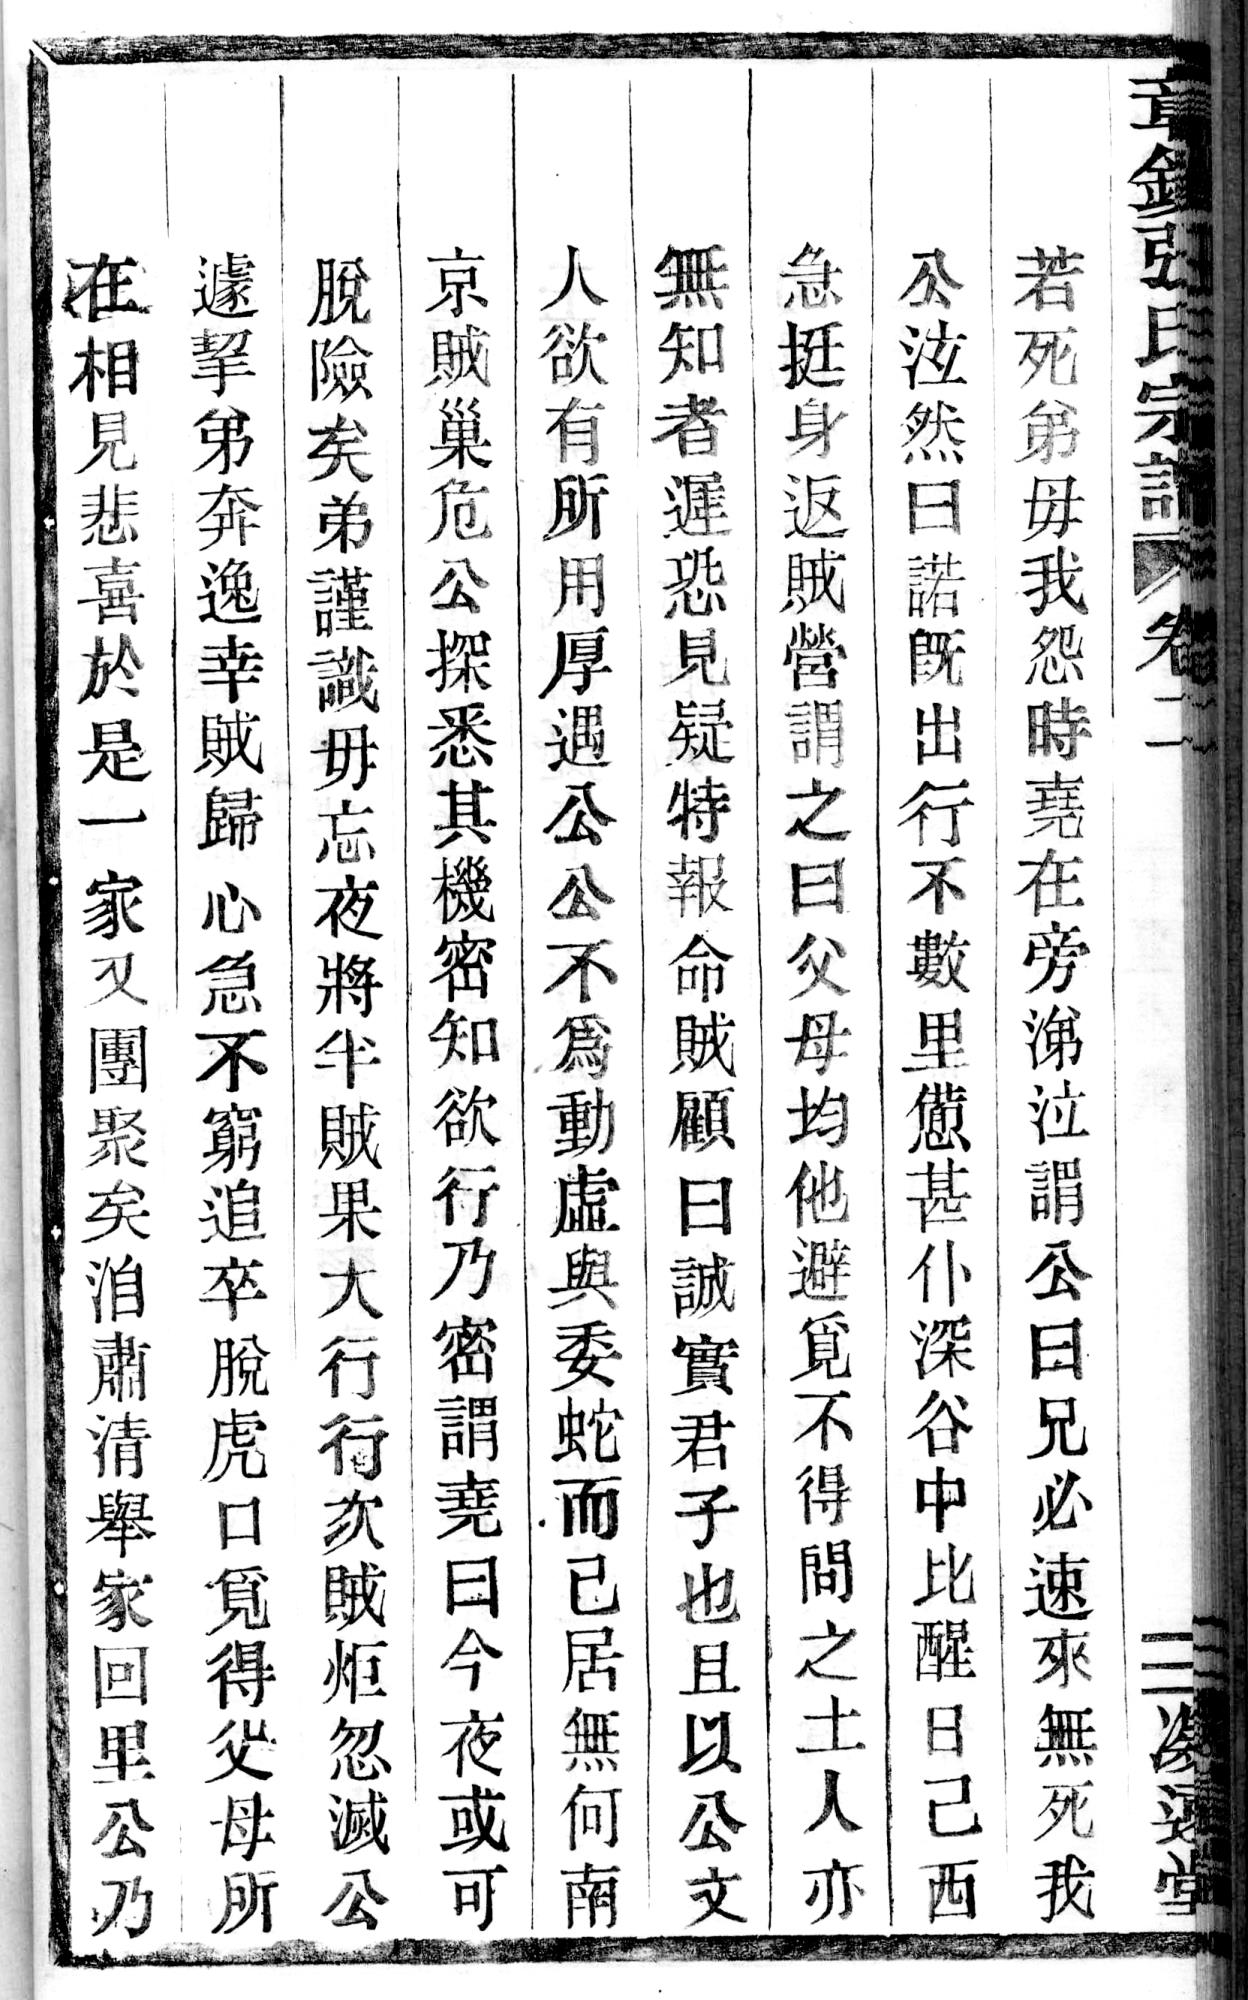 若死弟毋我怨時堯在旁涕泣謂公曰兄必速來無死我
公泣然曰諾旣出行不數里憊甚仆深谷中比醒日已西
急挺身返賊營謂之曰父母均他避覓不得問之土人亦
無知者遲恐見疑特報命賊顧曰誠實君子也且以公文
人欲有所用厚遇公公不爲動虛與委蛇而已居無何南
京賊巢危公探悉其機密知欲行乃密謂堯曰今夜或可
脫險矣弟謹識毋忘夜將半賊果大行行次賊炬忽滅公
遽挈弟奔逸幸賊歸心急不窮追卒脫虎口覓得父母所
在相見悲喜於是一家又團聚矣洎肅清舉家回里公乃
氏宗譜 卷二
堂